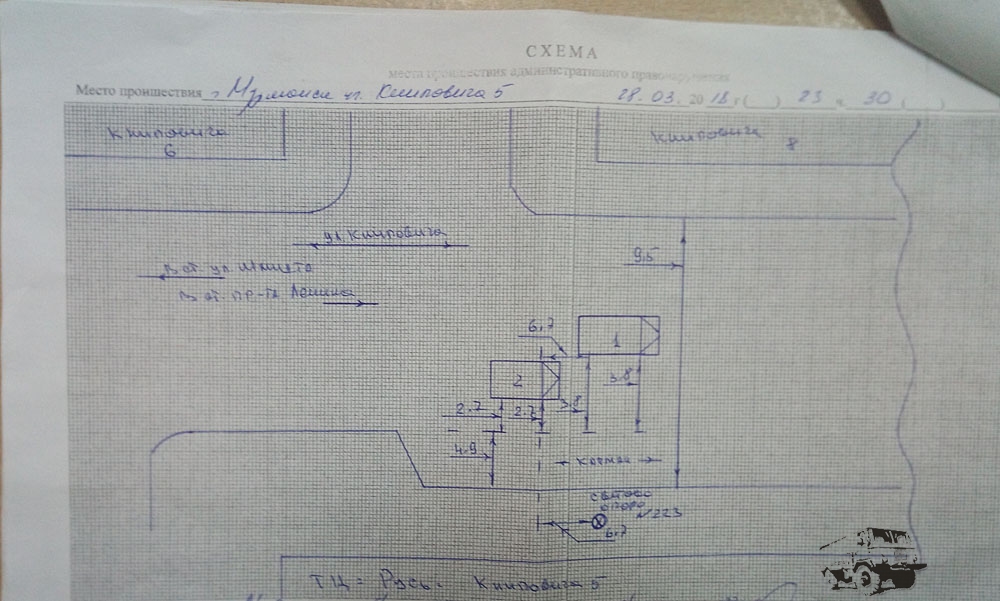 СХЕМА
места происшествия административного правонарушения
Место происшествия г. Мурманск ул. Книповича 5 28.03.2018 г ( ) 23 ч. 30 ( )
Книповича
6
Книповича 8
ул. Книповича
В ст. ул Шмидта
В ст. пр-та Ленина
9.5
6.7
1
2
3.8
3.8
2.7
2.7
4.9
карман
опора
N223
6.7
ТЦ "Русь" Книповича 5